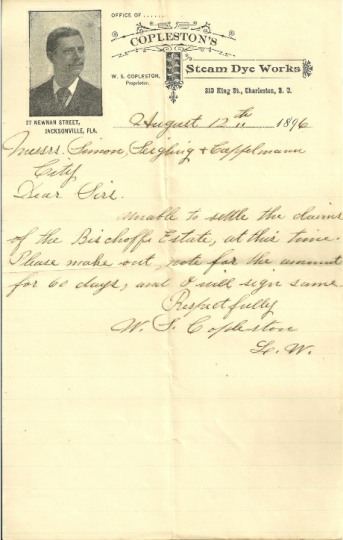 OFFICE OF .......
COPLESTON'S
Steam Dye Works
W. S. COPLESTON,
Proprietor.
213 King St., Charleston, S. C.
27 NEWNAN STREET,
JACKSONVILLE, FLA.
August 12th 1896
Messrs. Simon, Seigling & Cappelmann
City
Dear Sirs.
Unable to settle the claims
of the Bischoffs Estate, at this time.
Please make out, note for the amount
for 60 days, and I will sign same
Respectfully
W. S. Copleston
L. W.